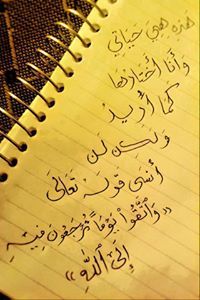 هذه هي حياتي
وأنا أختارها
كما أريد
ولكن لن
أنسى قوله تعالى
"وَاتَّقُوا يَوْمًا تُرْجَعُونَ فِيهِ
إِلَى اللَّهِ"